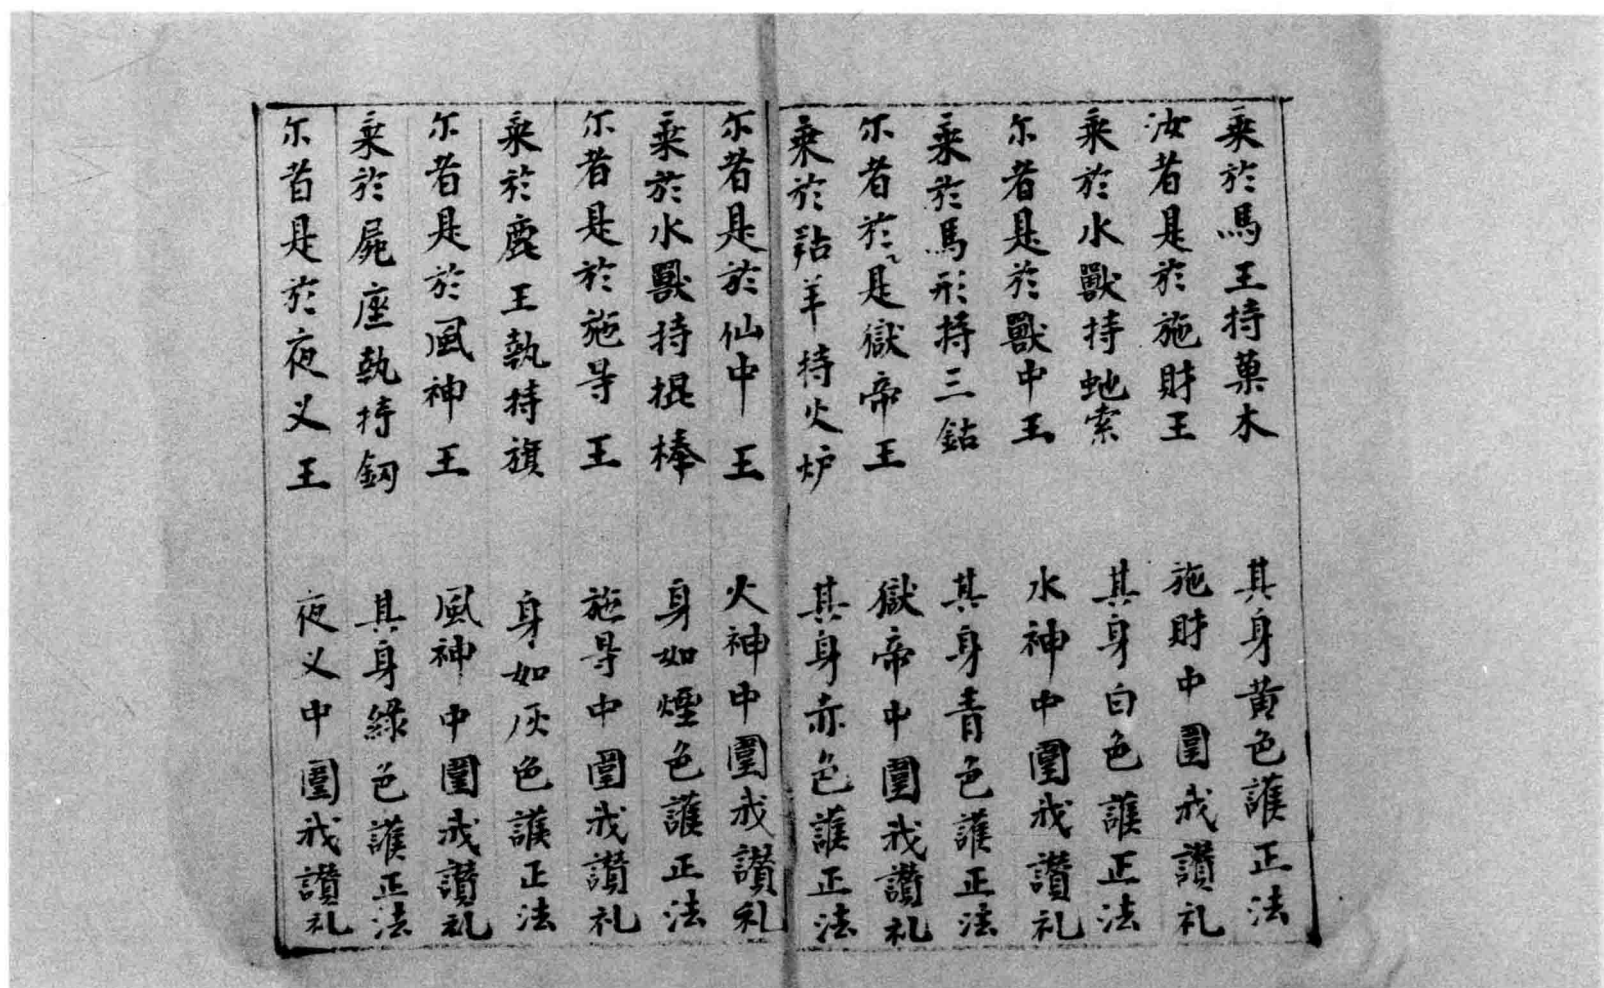 乘於馬王持菓木　其身黄色護正法
汝者是於施財王　施財中圍我讃礼
乘於水獸持虵索　其身白色護正法
尓者是於獸中王　水神中圍我讃礼
乘於馬形持三鈷　其身青色護正法
尓者於是獄帝王　獄帝中圍我讃礼
乘於䍩羊持火炉　其身赤色護正法
尓者是於仙中王　火神中圍我讃礼
乘於水獸持棍棒　身如煙色護正法
尓者是於施㝵王　施㝵中圍我讃礼
乘於鹿王執持旗　身如灰色護正法
尓者是於風神王　風神中圍我讃礼
乘於屍座執持鈎　其身緑色護正法
尓者是於夜义王　夜义中圍我讃礼